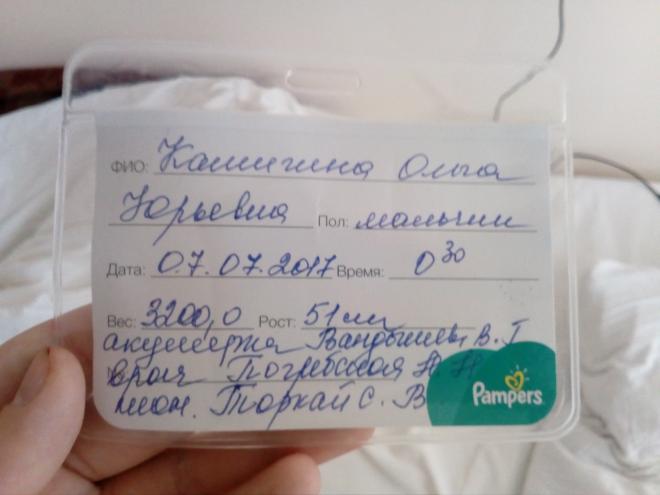 ФИО: Калигина Ольга
Юрьевна Пол: мальчик
Дата: 07.07.2017 Время: 0 30
Вес: 3200,0 Рост: 51 см
акушерка В. Г
врач Погребская Н. Н
Торкай С. В
Pampers